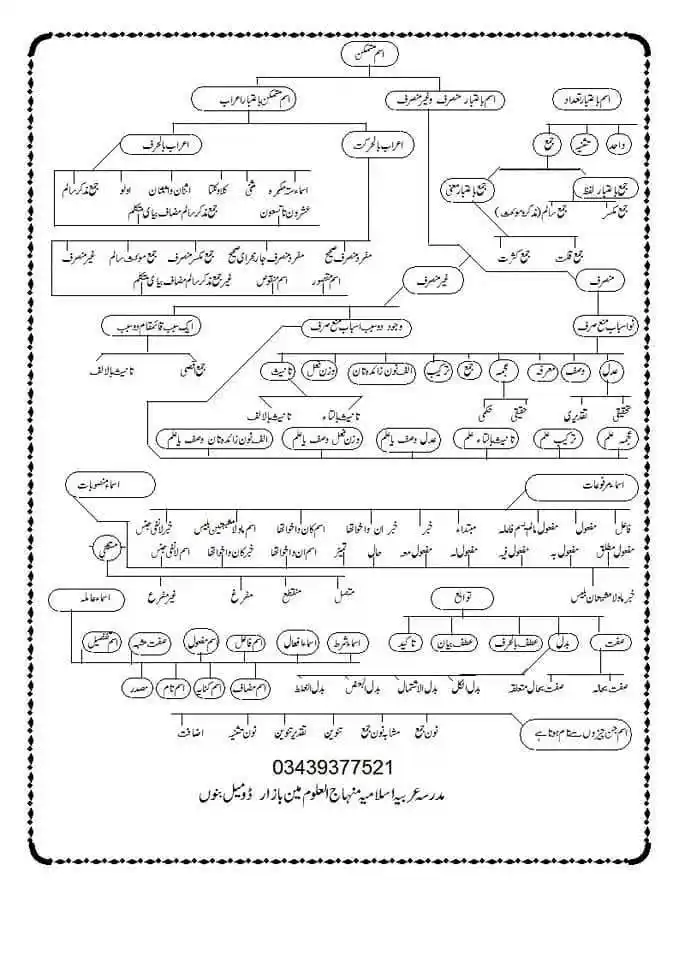 اسم متمکن
اسم باعتبار تعداد
اسم باعتبار منصرف وغیر منصرف
اسم متمکن باعتبار اعراب
واحد
تثنیہ
جمع
اعراب بالحرکت
اعراب بالحرف
جمع باعتبار لفظ
جمع باعتبار معنی
اسماء ستہ مکبرہ
مثنی
کلا وکلتا
اثنان واثنتان
اولو
جمع مذکر سالم
جمع مکسر
جمع سالم (مذکر ومونث)
عشرون تا تسعون
جمع مذکر سالم مضاف بیای متکلم
جمع قلت
جمع کثرت
مفرد منصرف صحیح
مفرد منصرف جار مجرای صحیح
جمع مکسر منصرف
جمع مونث سالم
غیر منصرف
اسم مقصور
اسم منقوص
غیر جمع مذکر سالم مضاف بیای متکلم
منصرف
غیر منصرف
نو اسباب منع صرف
وجود دو سبب اسباب منع صرف
ایک سبب قائمقام دو سبب
جمع اقصی
تانیث بالالف
عدل
وصف
معرفہ
عجمہ
جمع
ترکیب
الف نون زائدہ تان
وزن فعل
تانیث
تحقیقی
تقدیری
حقیقی
حکمی
تانیث بالتاء
تانیث بالالف
عجمہ علم
ترکیب علم
تانیث بالتاء علم
عدل وصف یا علم
وزن فعل وصف یا علم
الف نون زائدہ تان وصف یا علم
اسماء مرفوعات
اسماء منصوبات
فاعل
مفعول
مفعول مالم یسم فاعلہ
مبتداء
خبر
خبر ان واخواتھا
اسم کان واخواتھا
اسم ماولا مشبھتین بلیس
خبر لا نفی جنس
مفعول مطلق
مفعول بہ
مفعول فیہ
مفعول لہ
مفعول معہ
حال
تمیز
اسم ان واخواتھا
خبر کان واخواتھا
اسم لا نفی جنس
مستثنی
خبر ماولا مشبھتان بلیس
متصل
منقطع
مفرغ
غیر مفرغ
توابع
اسماء عاملہ
صفت
بدل
عطف بالحرف
عطف بیان
تاکید
اسماء شرط
اسماء افعال
اسم فاعل
اسم مفعول
صفت مشبہ
اسم تفضیل
صفت بحالہ
صفت بحال متعلقہ
بدل الکل
بدل الاشتمال
بدل البعض
بدل الغلط
اسم مضاف
اسم کنایہ
اسم تام
مصدر
اسم جن چیزوں سے تام ہوتا ہے
نون جمع
مشابہ نون جمع
تنوین
تقدیر تنوین
نون تثنیہ
اضافت
03439377521
مدرسہ عربیہ اسلامیہ منہاج العلوم مین بازار ڈومیل بنوں